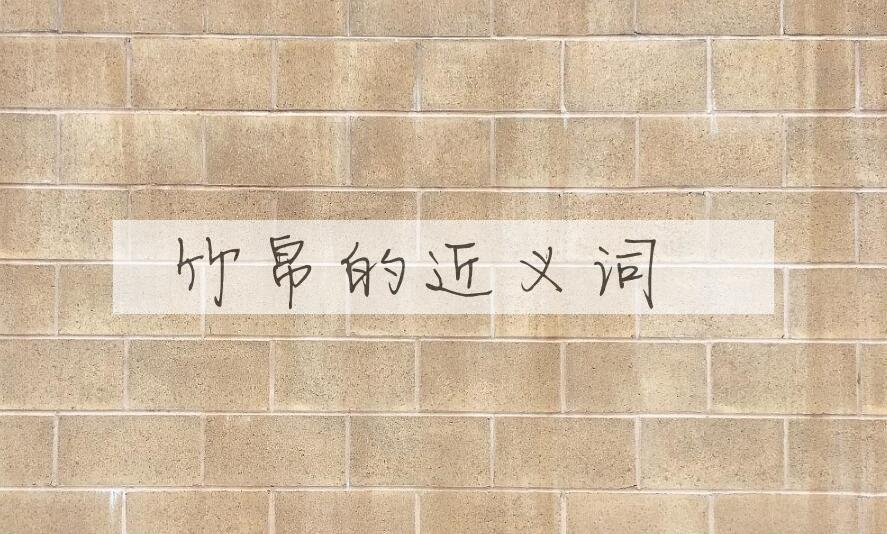 竹帛的近义词